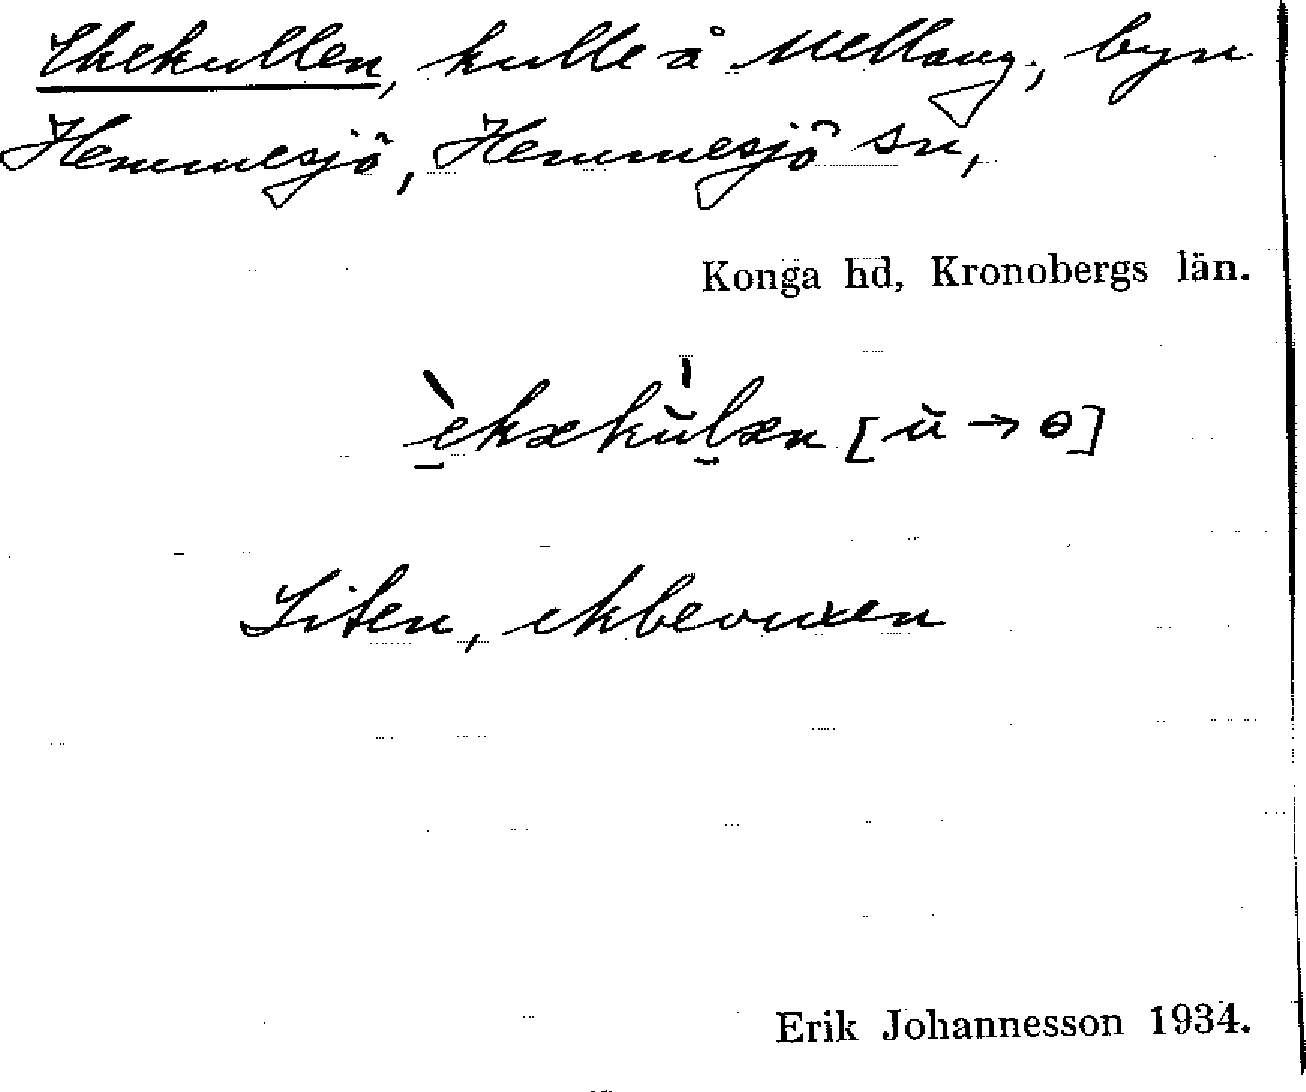 Ekekullen, kulle å Mellang., byn
Hemmesjö, Hemmesjö sn,
Konga hd, Kronobergs län.
èkækŭlæn [ŭ → ɵ]
Liten, ekbevuxen
Erik Johannesson 1934.